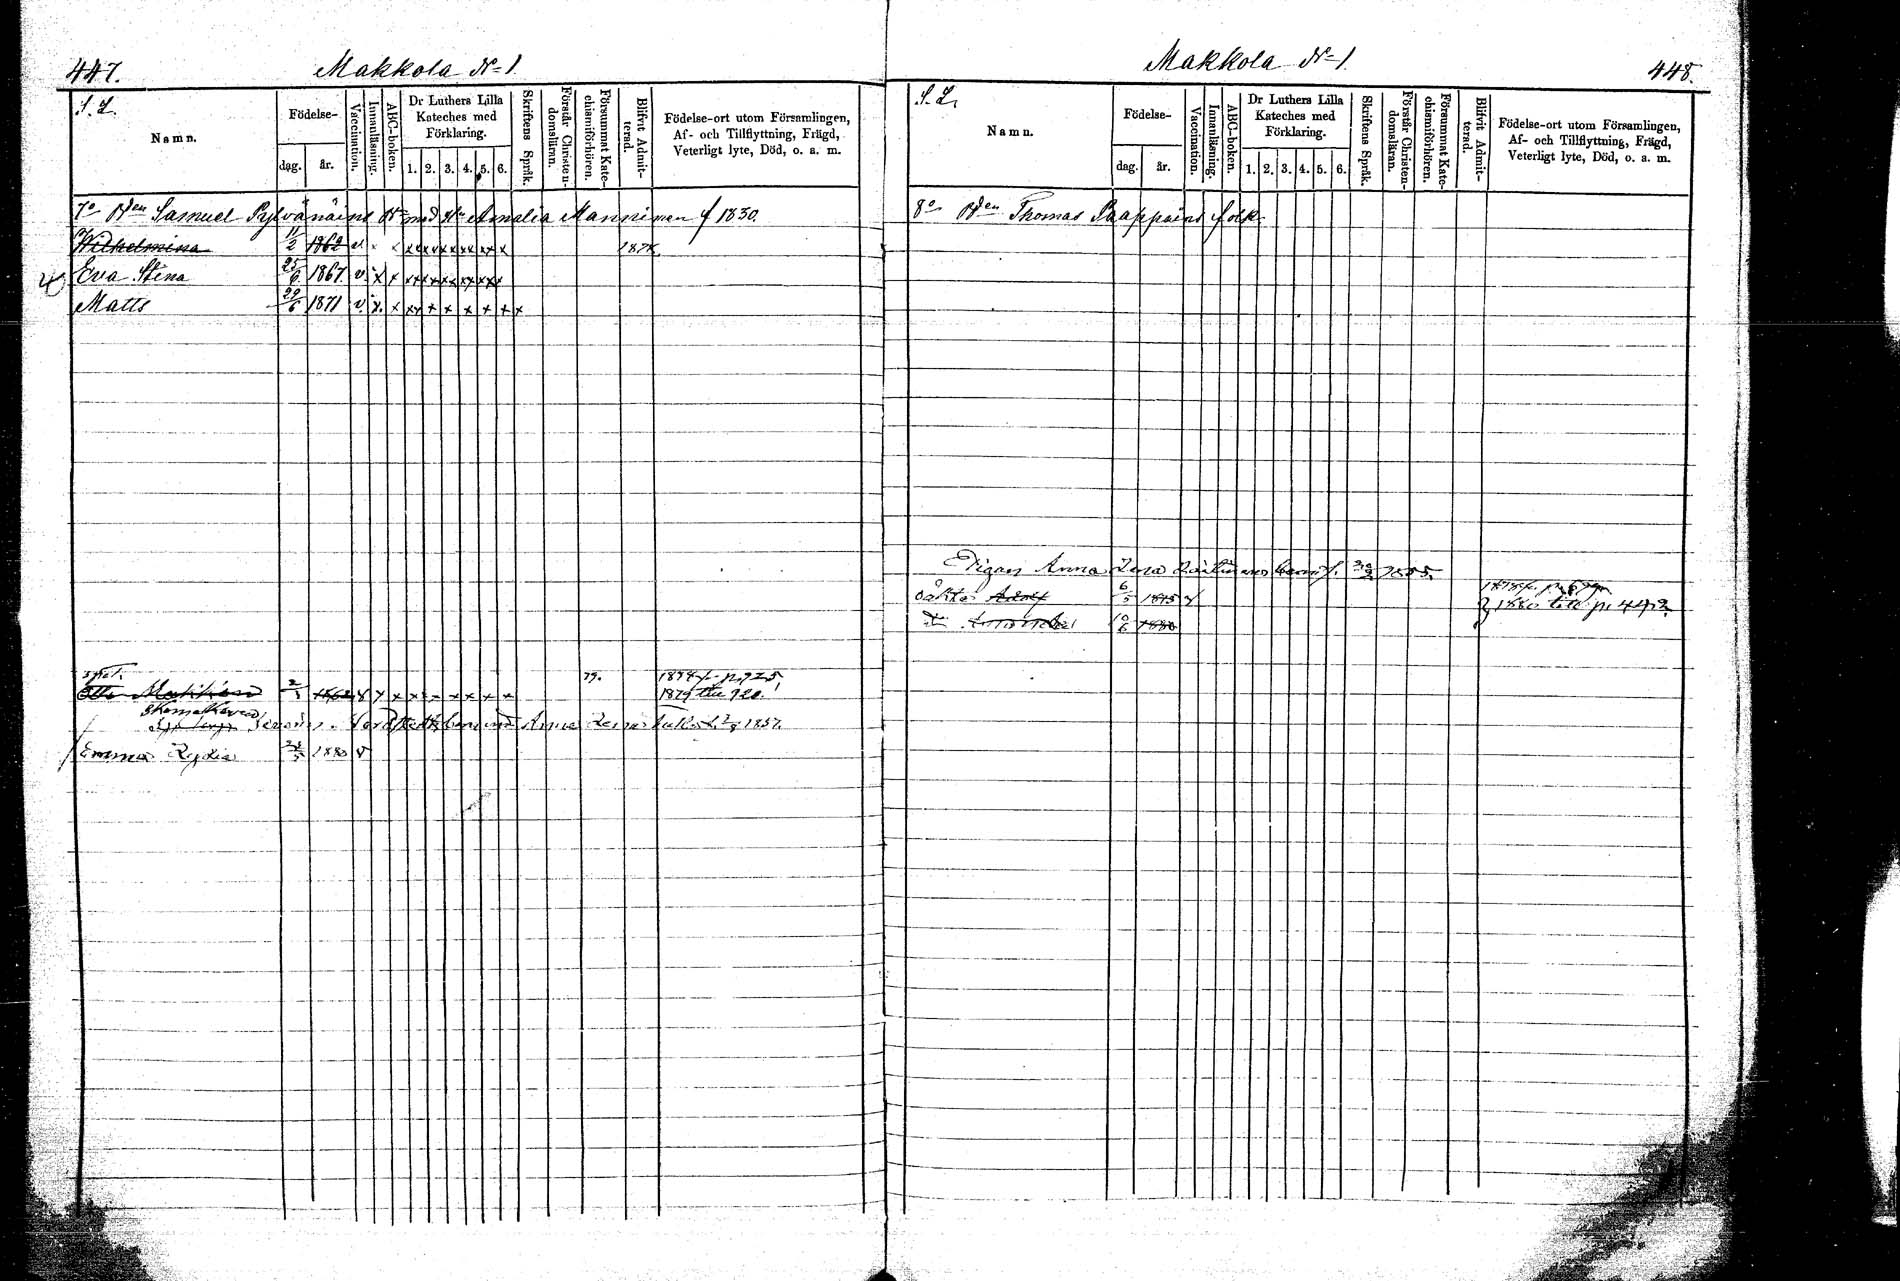 447.
Makkola No 1
S. L.
Namn.
Födelse-
dag.
år.
Vaccination.
Innanläsning.
ABC-boken.
Dr Luthers Lilla
Kateches med
Förklaring.
1. 2. 3. 4. 5. 6.
Skriftens Språk.
Förstår Christen-
domsläran.
Försummat Kate-
chismiförhören.
Blifvit Admit-
terad.
Födelse-ort utom Församlingen,
Af- och Tillflyttning, Frägd,
Veterligt lyte, Död, o. a. m.
7o Bden Samuel Pylvänäins med Amalia Manninen f 1830.
Wilhelmina 11/2 1862 v. x x xx xx xx xx xx x 1878.
Eva Stina 25/6 1867 v. x x xx xx xx xx xx x
Matts 29/6 1871 v. x. x xx x x x x x x
79. 1878 fr. p. 925
Otto 2/3 1862 v x x xx x x x x x 1879 till 920.
Anna Lena 1857.
Emma Lydia 1880 v
Makkola No 1.
448.
S. L.
Namn.
Födelse-
dag.
år.
Vaccination.
Innanläsning.
ABC-boken.
Dr Luthers Lilla
Kateches med
Förklaring.
1. 2. 3. 4. 5. 6.
Skriftens Språk.
Förstår Christen-
domsläran.
Försummat Kate-
chismiförhören.
Blifvit Admit-
terad.
Födelse-ort utom Församlingen,
Af- och Tillflyttning, Frägd,
Veterligt lyte, Död, o. a. m.
8o Bden Thomas Paappains folk
Pigan Anna Lena barn f. 1855.
oäkta Adolf 6/5 1875 v
1880 till p. 442
10/6 1880